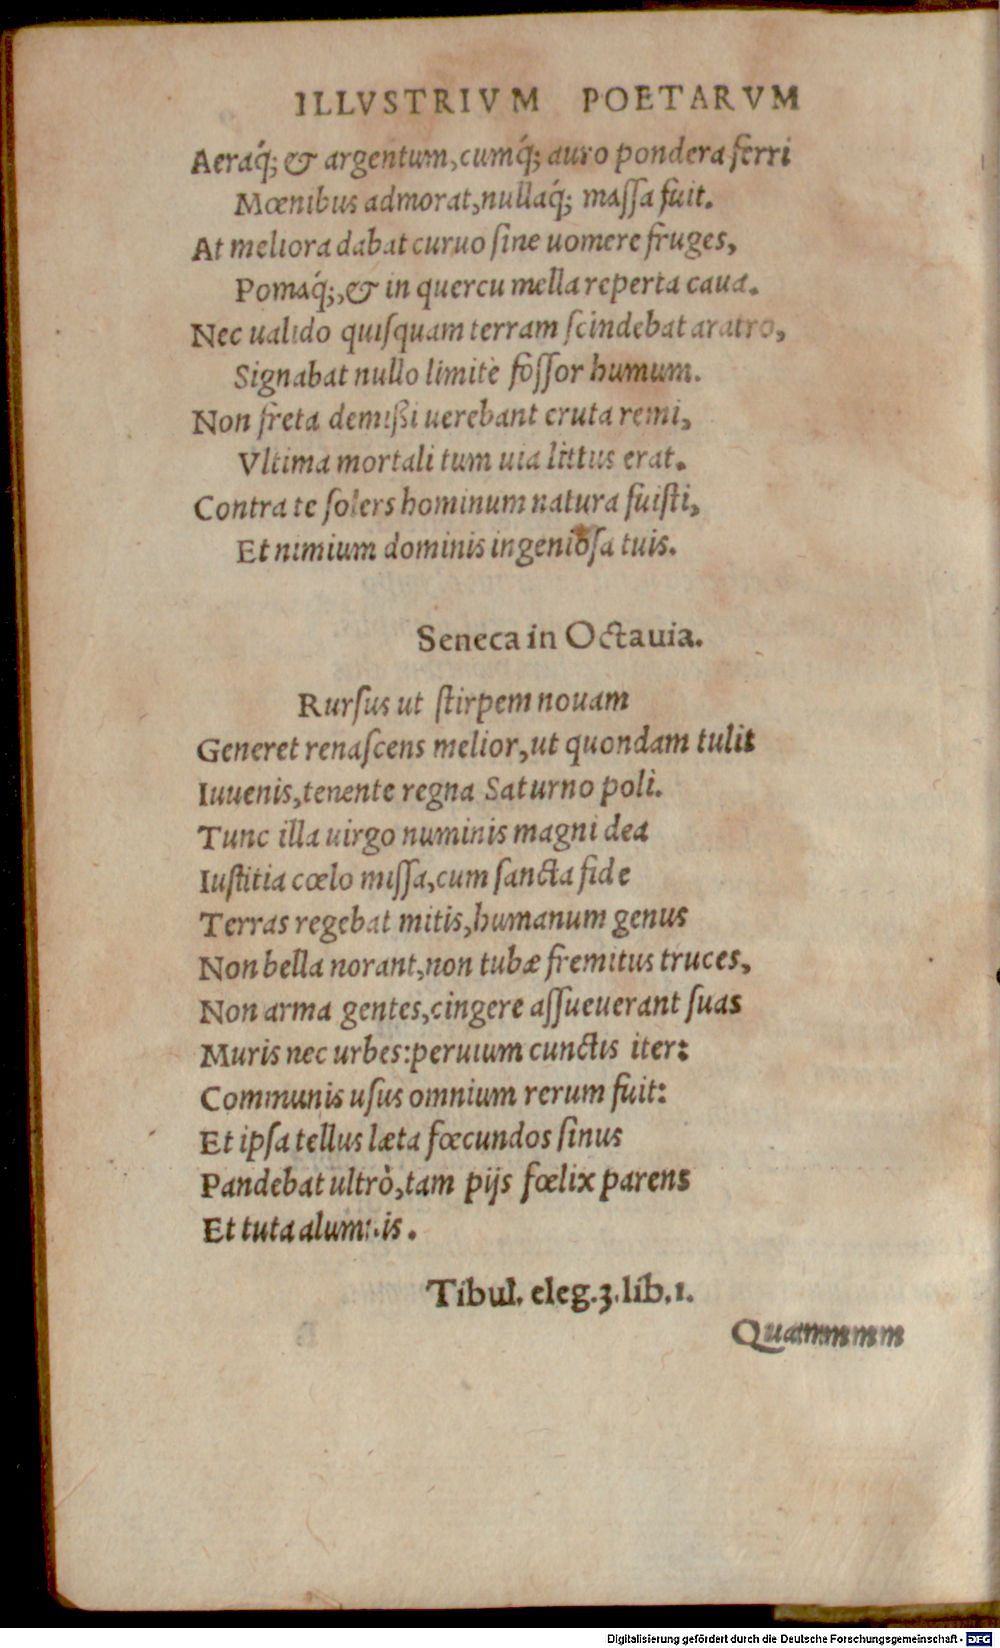 ILLVSTRIVM POETARVM
Aeraq́; & argentum, cumq́; auro pondera ferri
Mœnibus admorat, nullaq́; maſſa fuit.
At meliora dabat curuo ſine uomere fruges,
Pomaq́;, & in quercu mella reperta caua.
Nec ualido quiſquam terram ſcindebat aratro,
Signabat nullo limite foſſor humum.
Non freta demißi uerebant eruta remi,
Vltima mortali tum uia littus erat.
Contra te ſolers hominum natura fuiſti,
Et nimium dominis ingenioſa tuis.
Seneca in Octauia.
Rurſus ut ſtirpem nouam
Generet renaſcens melior, ut quondam tulit
Iuuenis, tenente regna Saturno poli.
Tunc illa uirgo numinis magni dea
Iuſtitia cœlo miſſa, cum ſancta fide
Terras regebat mitis, humanum genus
Non bella norant, non tubæ fremitus truces,
Non arma gentes, cingere aſſueuerant ſuas
Muris nec urbes: peruium cunctis iter:
Communis uſus omnium rerum fuit:
Et ipſa tellus læta fœcundos ſinus
Pandebat ultrò, tam pijs fœlix parens
Et tuta alumnis.
Tibul. eleg. 3. lib. 1.
Digitalisierung gefördert durch die Deutsche Forschungsgemeinschaft - DFG